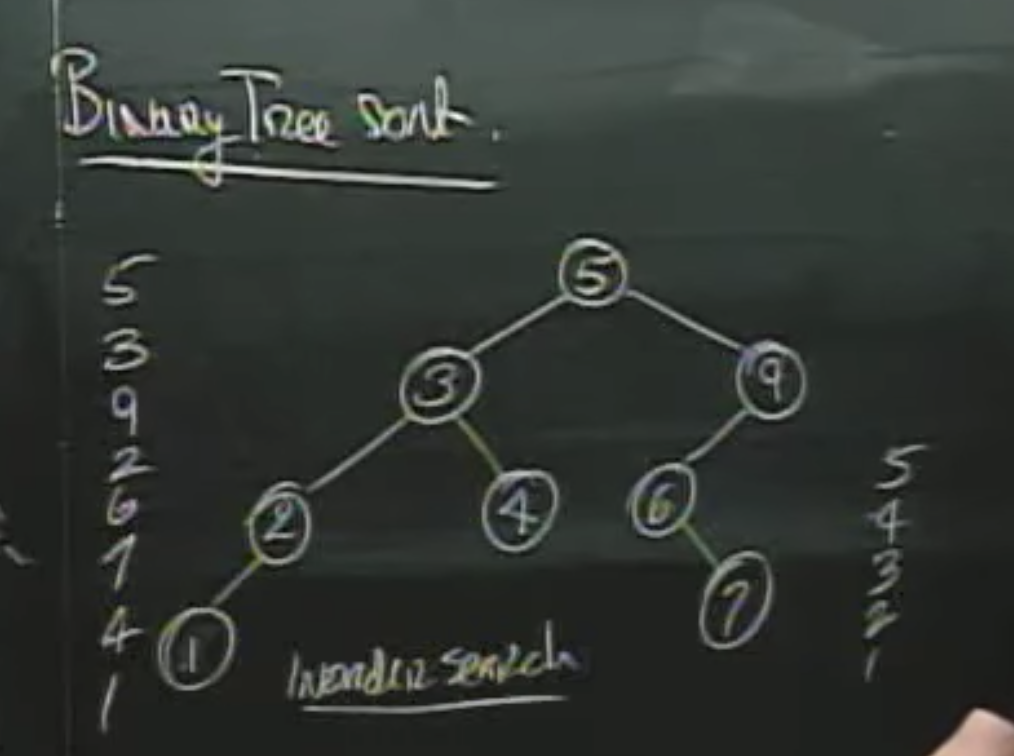 Binary Tree sort.
5
3
9
2
6
7
4
1
5
3
9
2
4
6
1
7
Inorder search
5
4
3
2
1